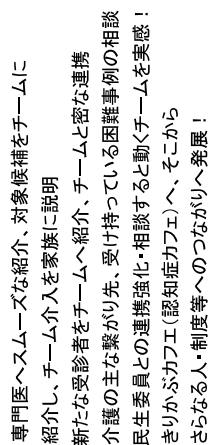 専門医へスムーズな紹介、対象候補をチームに
紹介し、チーム介入を家族に説明
新たな受診者をチームへ紹介、チームと密な連携
介護の主な繋がり先、受け持っている困難事例の相談
民生委員との連携強化・相談すると動くチームを実感！
きりかぶカフェ（認知症カフェ）へ、そこから
さらなる人・制度等へのつながりへ発展！